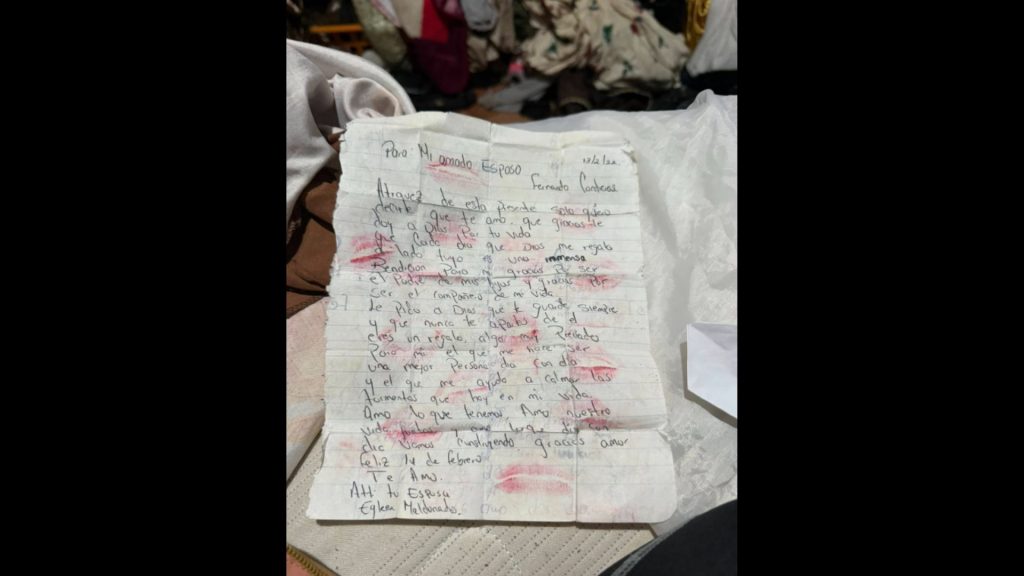 Para: Mi amado Esposo 13/2/22.
Fernando Contreras
Atravez de esta presente solo quiero
decirte que te amo. que gracias le
doy a Dios Por tu vida
que Cada dia que Dios me regala
al lado tuyo es una immensa
Bendicion Para mi gracias Por ser
el Padre de mis hijos y gracias Por
ser el compañero de mi vida
Le Pido a Dios que te guarde siempre
y que nunca te apartes de el
eres un regalo, algo muy Preciado
Para mi el que me hace ser
una mejor Persona dia con dia
y el que me ayuda a calmar las
tormentas que hay en mi vida.
Amo lo que tenemos, Amo nuestra
vida juntos y amo lo que dia con
dia vamos construyendo gracias amor
Feliz 14 de febrero
Te Amo.
Att tu Esposa
Maldonado.